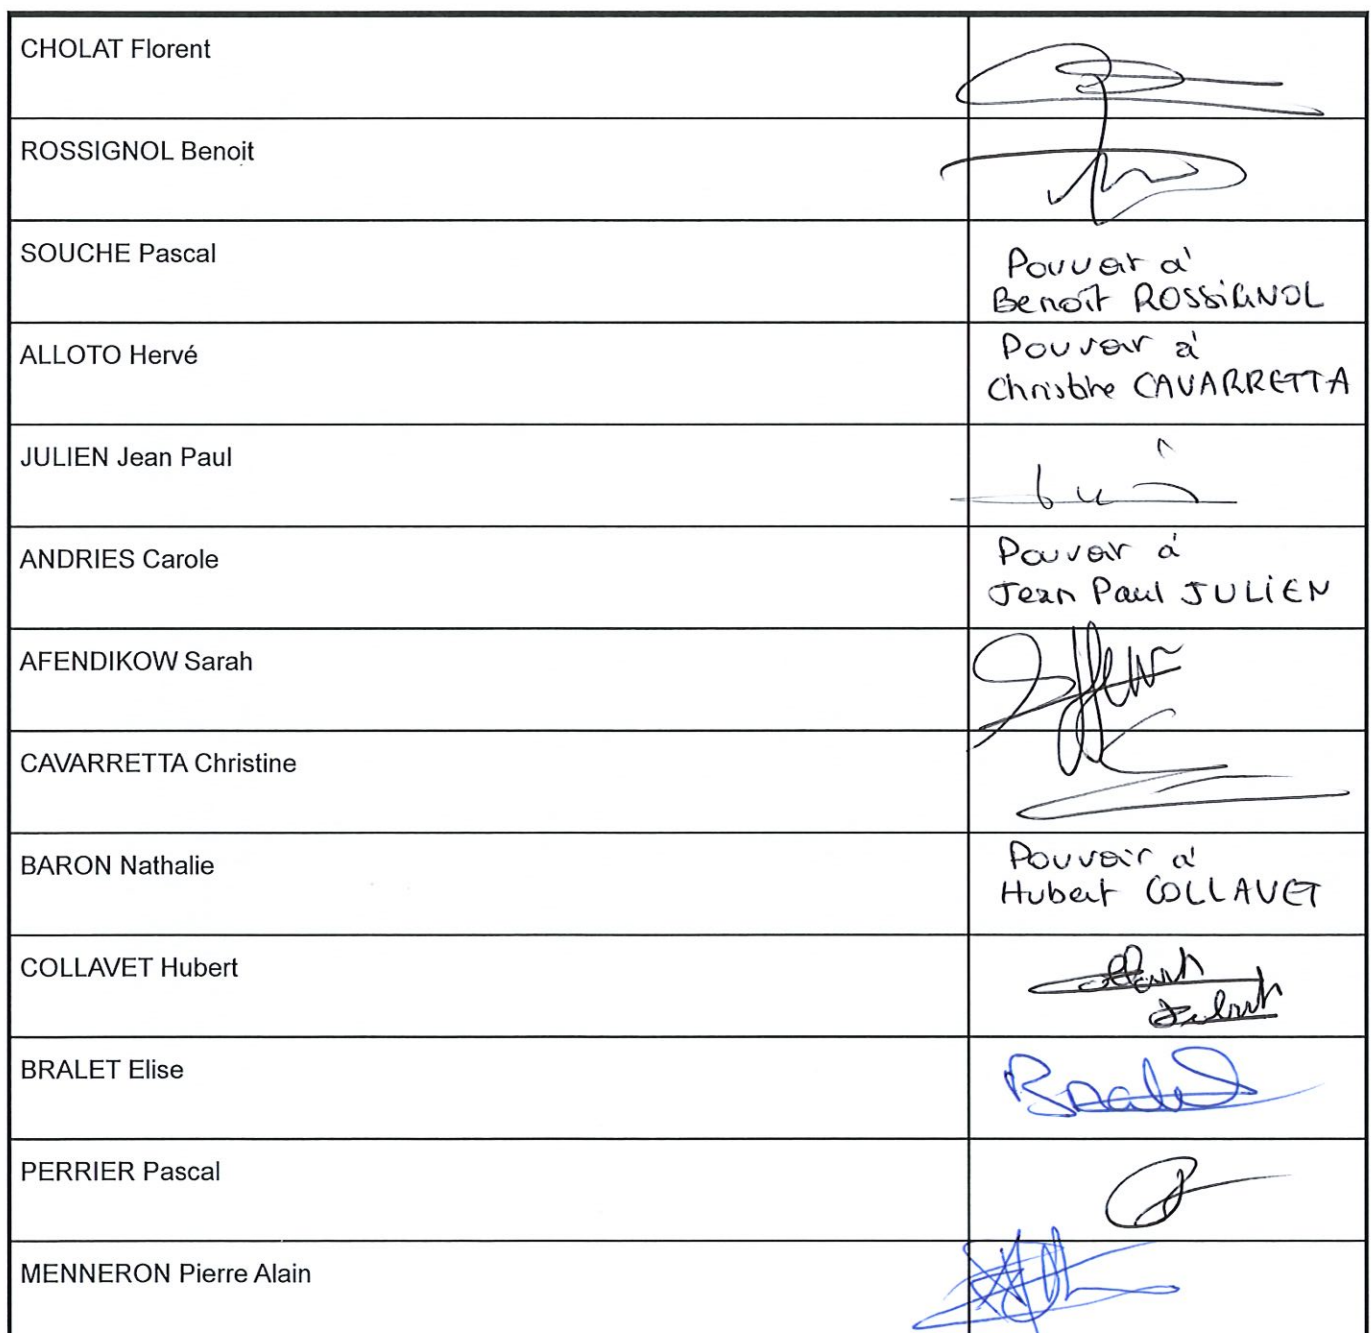 CHOLAT Florent
ROSSIGNOL Benoit
SOUCHE Pascal
Pouvoir à
Benoît ROSSIGNOL
ALLOTO Hervé
Pouvoir à
Christine CAVARRETTA
JULIEN Jean Paul
ANDRIES Carole
Pouvoir à
Jean Paul JULIEN
AFENDIKOW Sarah
CAVARRETTA Christine
BARON Nathalie
Pouvoir à
Hubert COLLAVET
COLLAVET Hubert
Collavet
Hubert
BRALET Elise
Bralet
PERRIER Pascal
MENNERON Pierre Alain